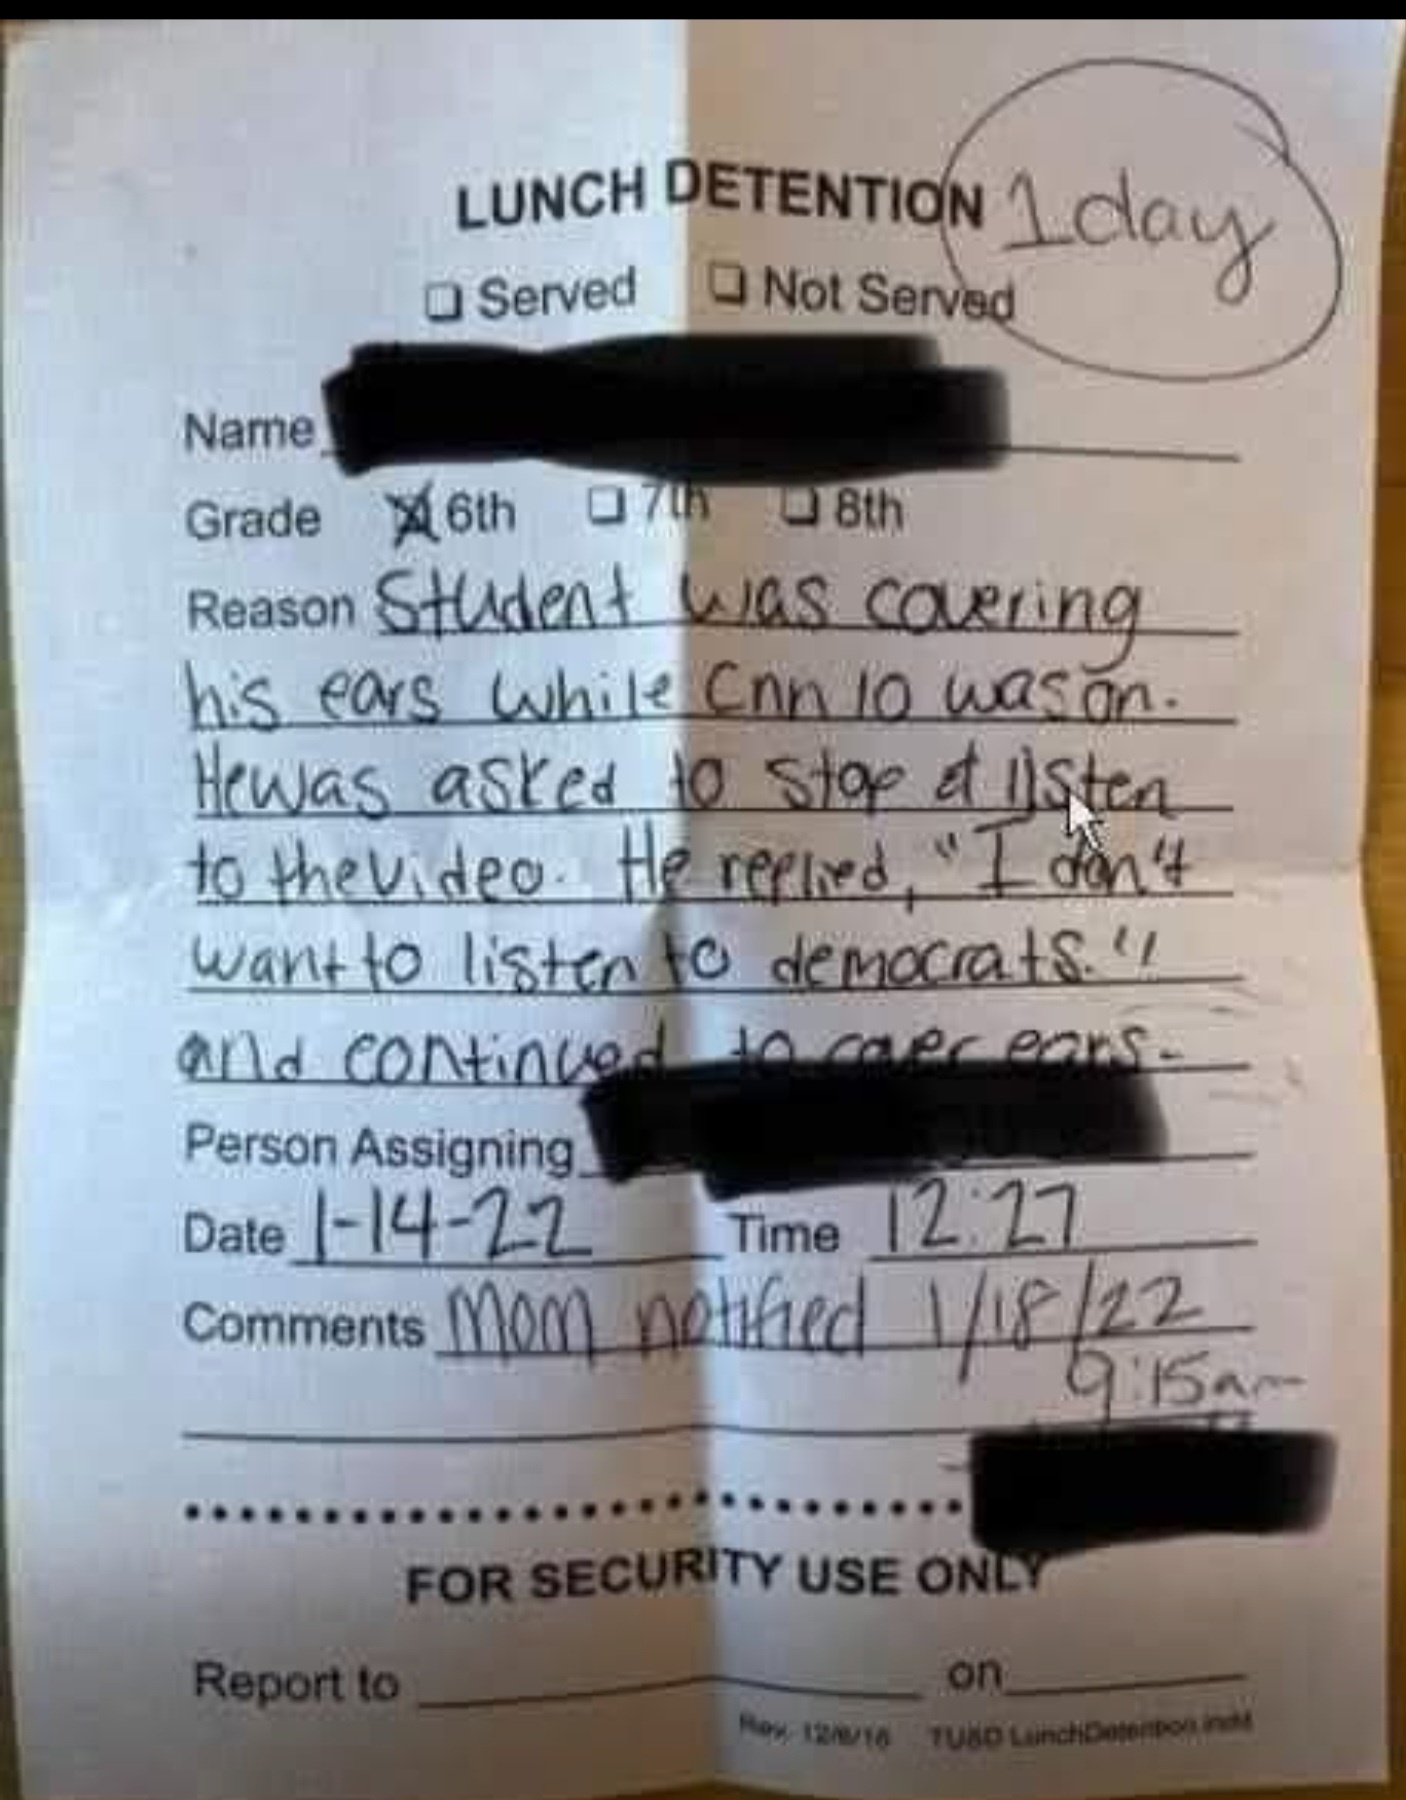 LUNCH DETENTION 1 day
❏ Served ❏ Not Served
Name
Grade ☒ 6th ❏ 7th ❏ 8th
Reason Student was covering
his ears while Cnn 10 was on.
He was asked to stop & listen
to the video. He replied, "I don't
want to listen to democrats."
and continued to cover ears.
Person Assigning
Date 1-14-22 Time 12:27
Comments Mom notified 1/18/22
9:15am
FOR SECURITY USE ONLY
Report to on
Rev. TUSD LunchDetention.indd